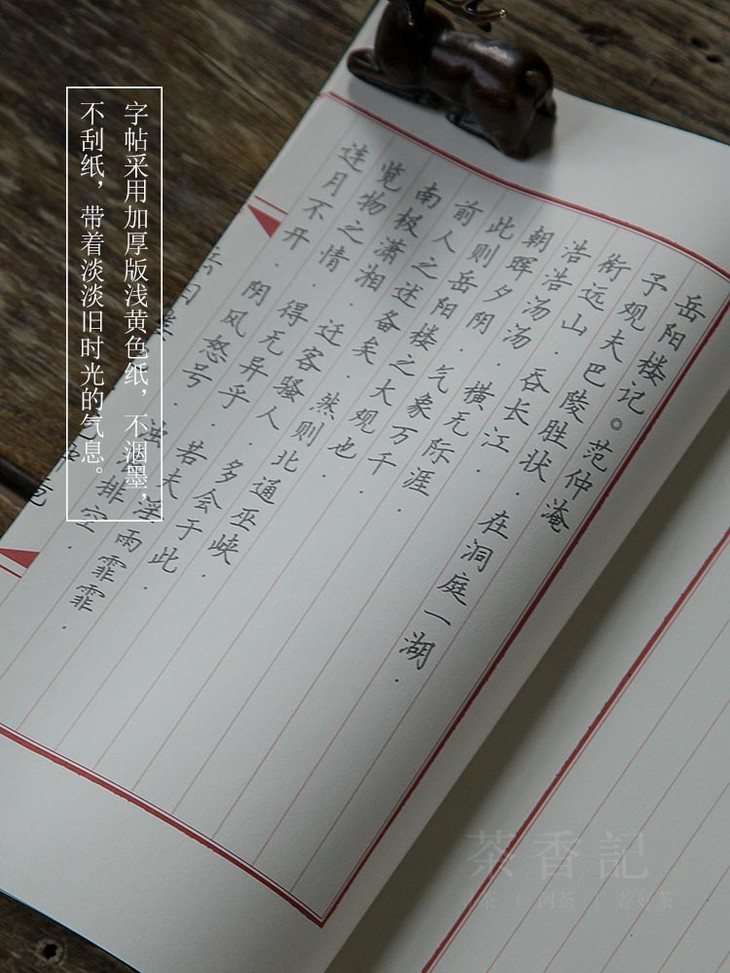 字帖采用加厚版浅黄色纸，不洇墨，
不刮纸，带着淡淡旧时光的气息。
岳阳楼记。范仲淹
予观夫巴陵胜状．在洞庭一湖．
衔远山．吞长江．
浩浩汤汤．横无际涯．
朝晖夕阴．气象万千．
此则岳阳楼之大观也．
前人之述备矣．然则北通巫峡．
南极潇湘．迁客骚人．多会于此．
览物之情．得无异乎．若夫淫雨霏霏．
连月不开．阴风怒号．浊浪排空．
茶香記